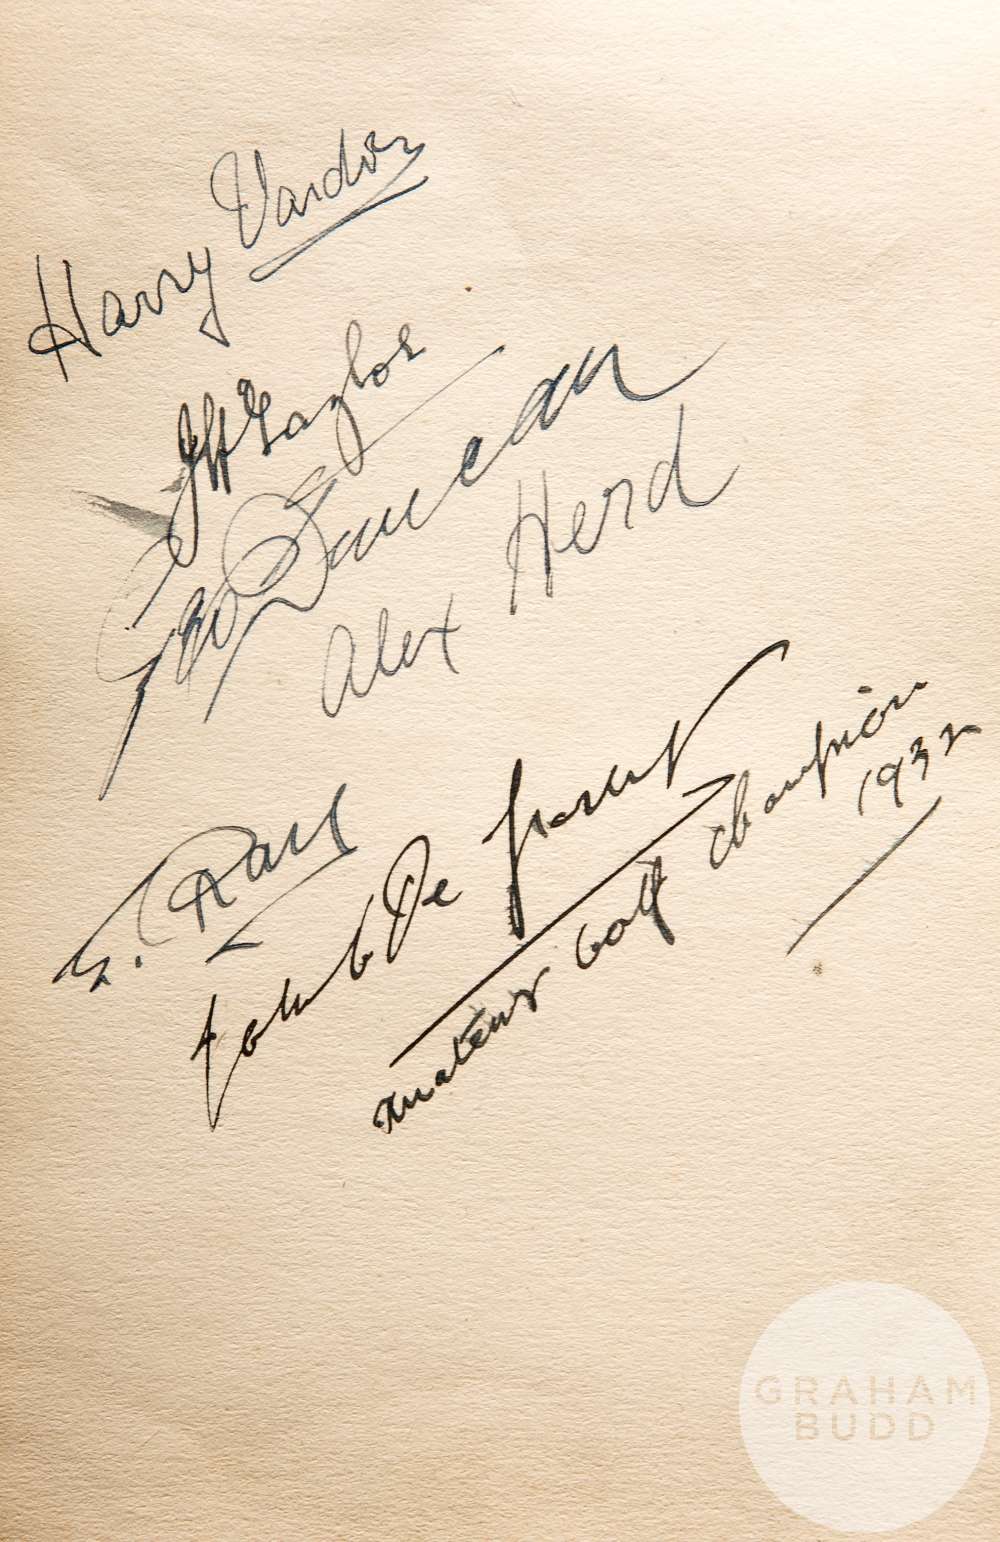 Harry Vardon
JH Taylor
Geo Duncan
Alex Herd
E. Ray
John De Forest
Amateur Golf Champion
1932
GRAHAM
BUDD